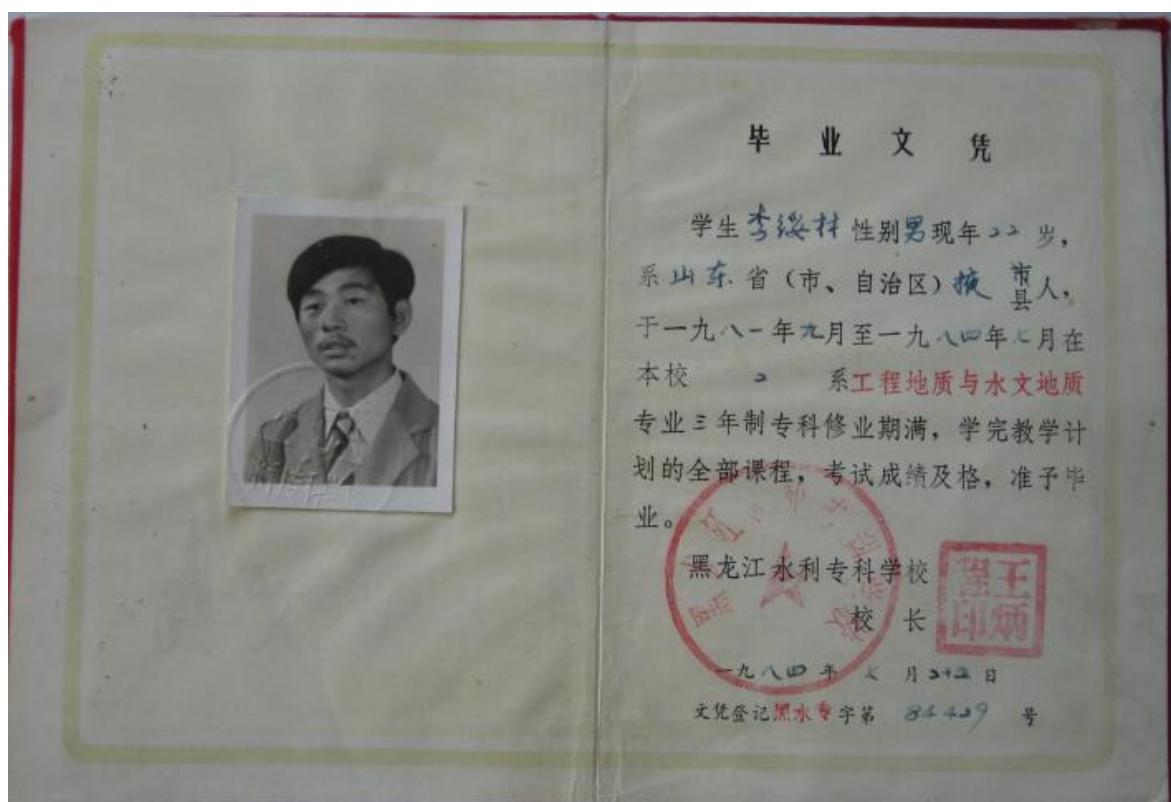 毕业文凭
学生李绥林性别男现年22岁，
系山东省（市、自治区）掖市县人，
于一九八一年九月至一九八四年七月在
本校 2 系工程地质与水文地质
专业三年制专科修业期满，学完教学计
划的全部课程，考试成绩及格，准予毕
业。
黑龙江水利专科学校
校长
王炳印
一九八四年七月 日
文凭登记黑水专字第 84429 号